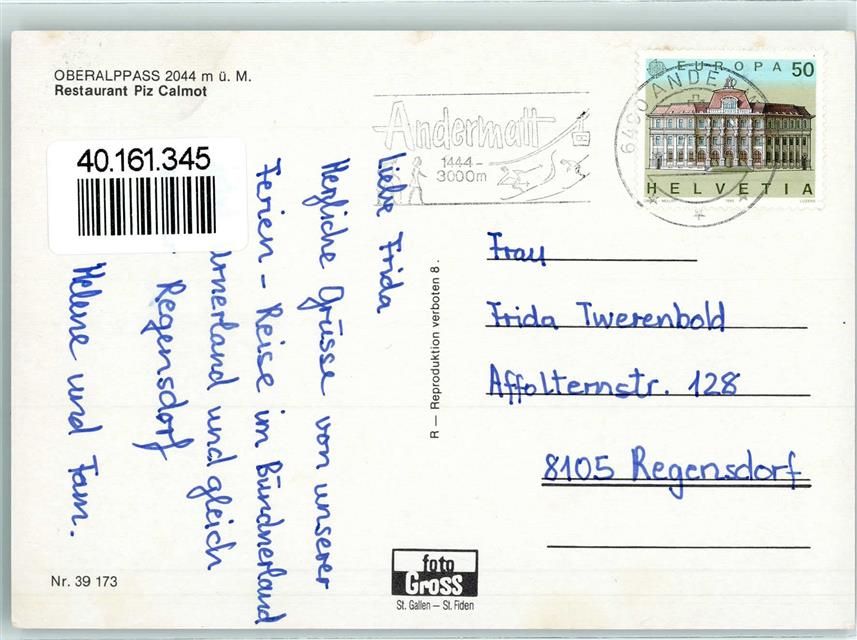 OBERALPPASS 2044 m ü. M.
Restaurant Piz Calmot
40.161.345
Andermatt
1444-
3000m
EUROPA 50
HELVETIA
Liebe Frida
Herzliche Grüsse von unserer
Ferien - Reise im Bündnerland
und gleich
Regensdorf
Helene und Fam.
R — Reproduktion verboten 8.
Frau
Frida Twerenbold
Affolternstr. 128
8105 Regensdorf
Nr. 39 173
foto
Gross
St. Gallen — St. Fiden